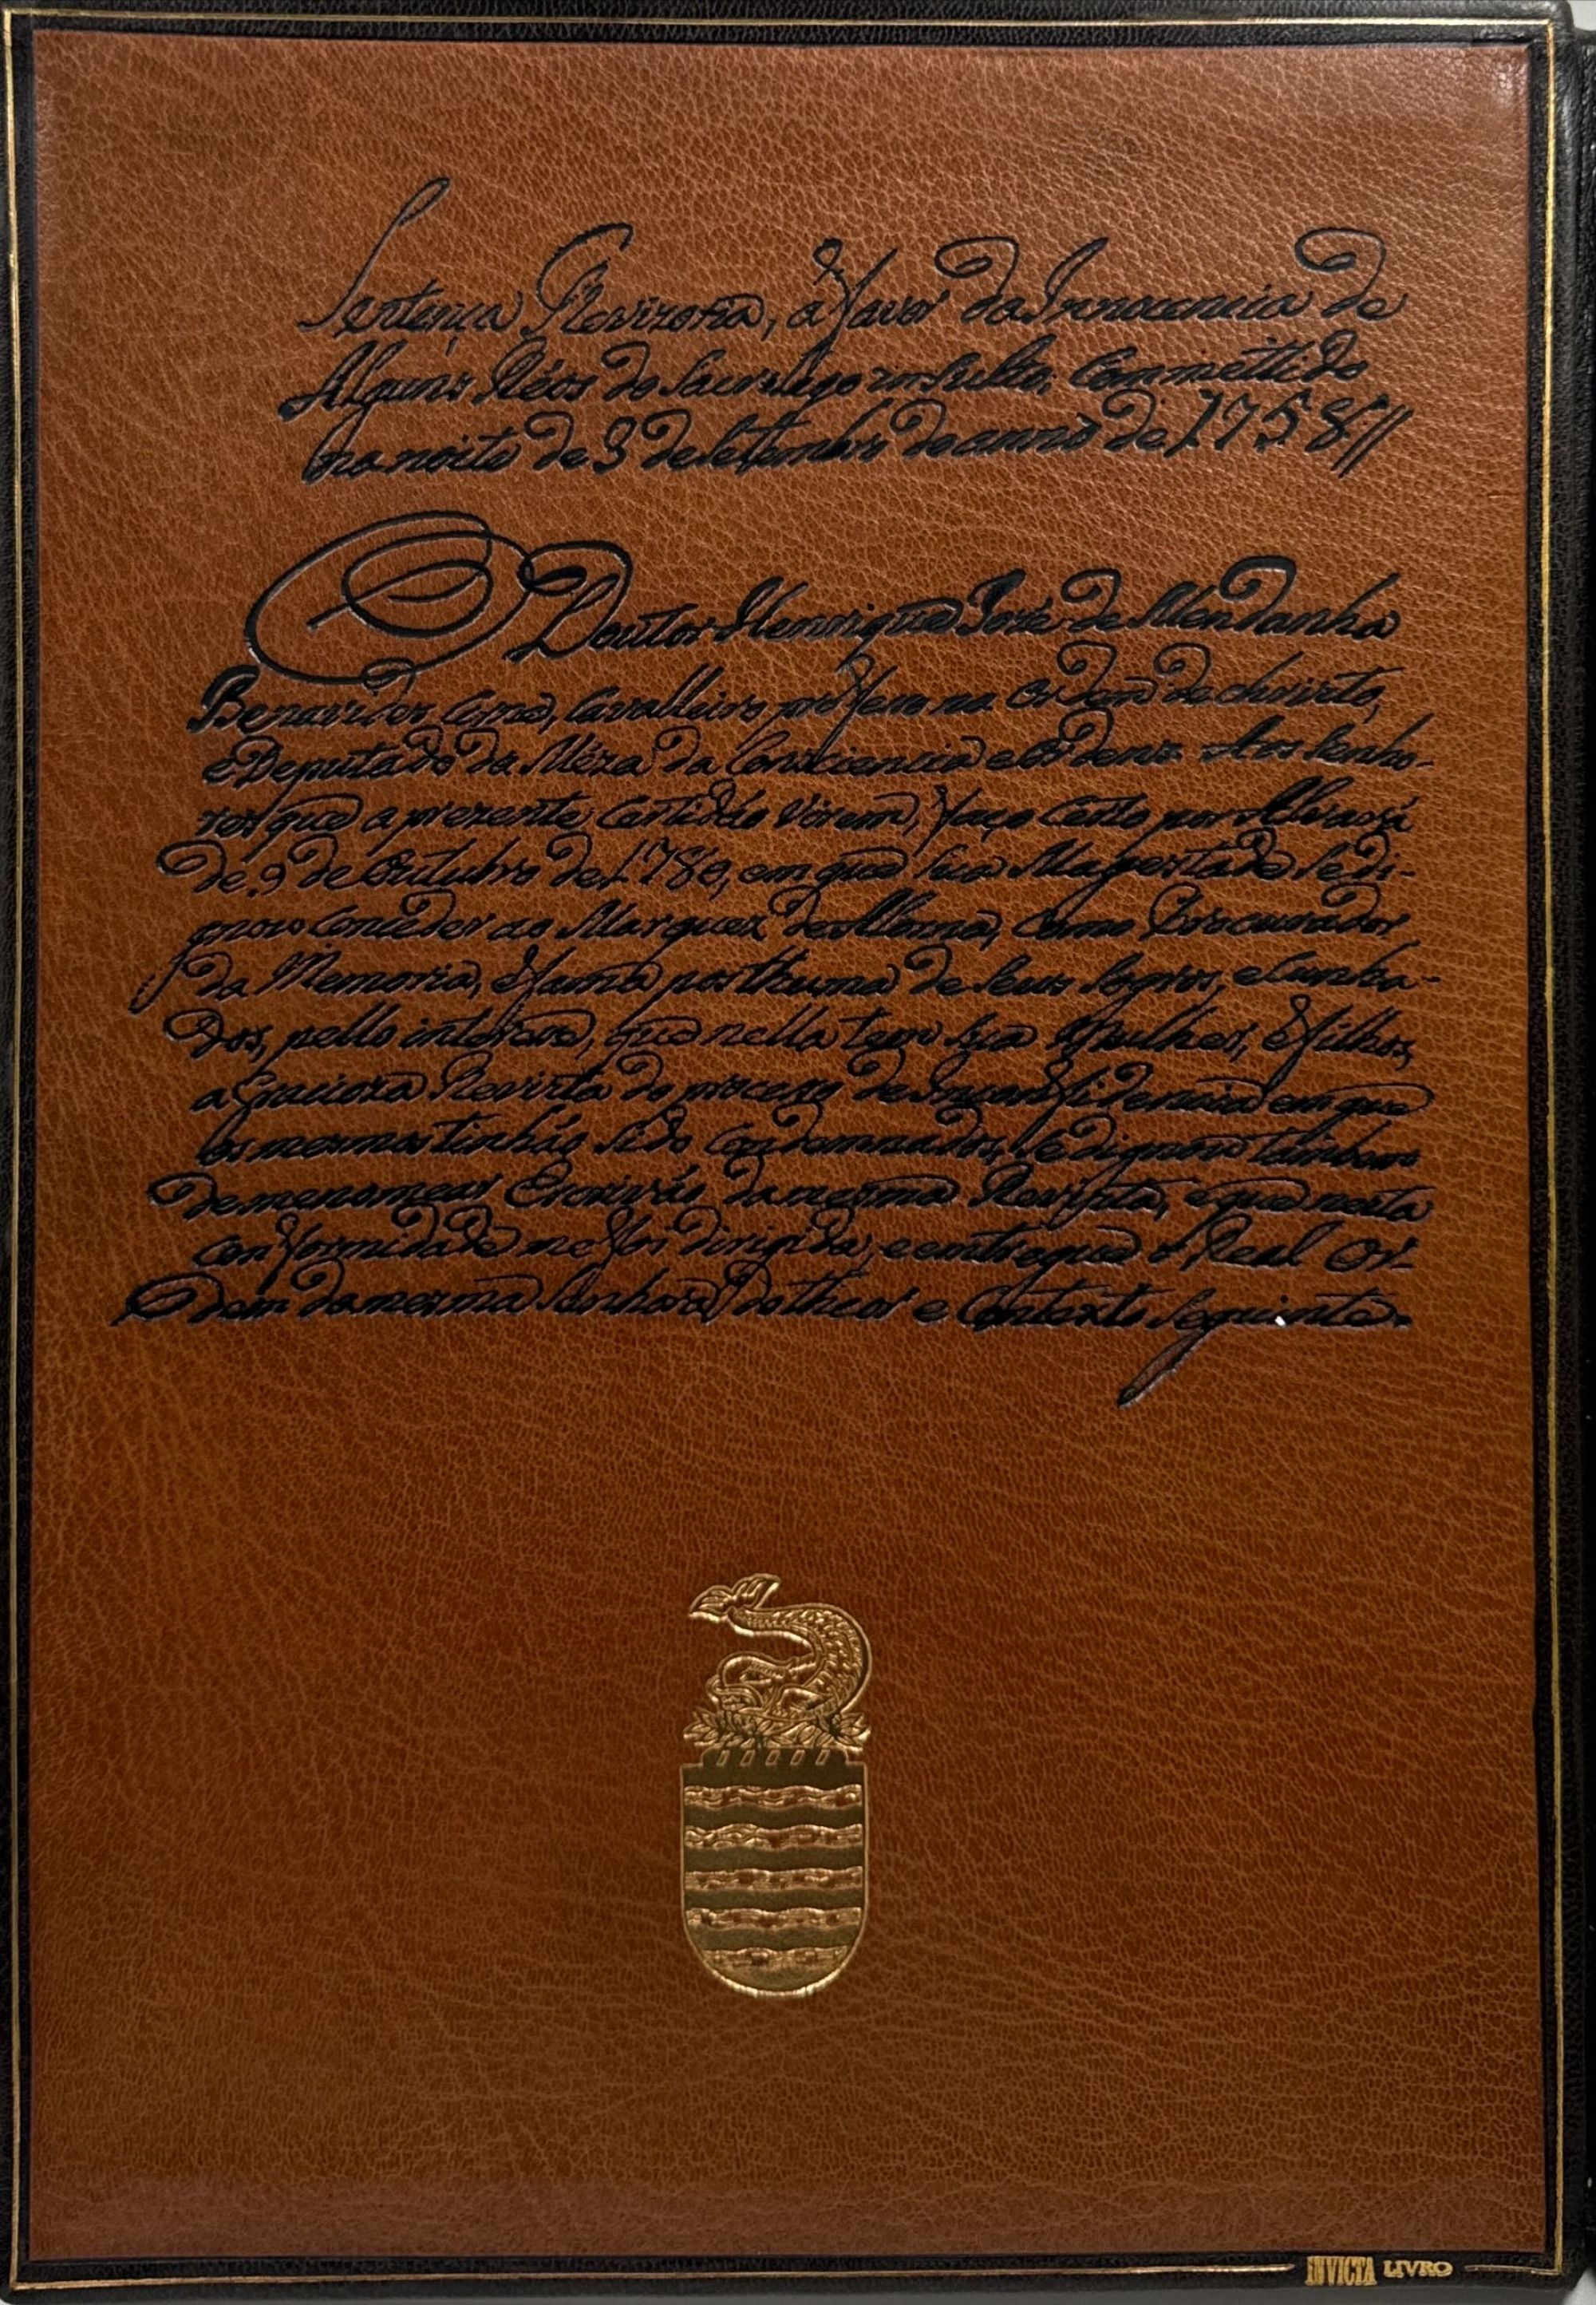 Sentença Revizoria, á favor da Innocencia de
Alguns Réos do Sacrilego insulto, Commettido
na noite de 3 de Setembro do anno de 1758//
O Doutor Henrique José de Mendanha
Benavides Cirne, Cavalleiro professo na Ordem de Christo,
e Deputado da Mêza da Consciencia e Ordens. Aos Senho-
res que a prezente Certidão virem, faço Certo por Alvará
de 9 de Outubro de 1780, em que Sua Magestade Se di-
gnou Conceder ao Marquez de Alorna, Como Procurador
da Memoria, e fama posthuma de Seus Sogros, e Cunha-
dos, pello interesse, que nella tem Sua Mulher, e filhos,
a Gracioza Revista do processo de Inconfidencia em que
os mesmos tinhão Sido Condemnados, Se dignou tambem
de me nomear Escrivão da mesma Revista, e que nesta
conformidade me foi dirigida, e entregue a Real Or-
dem da mesma Senhora do theor e Contexto Seguinte.
INVICTA LIVRO